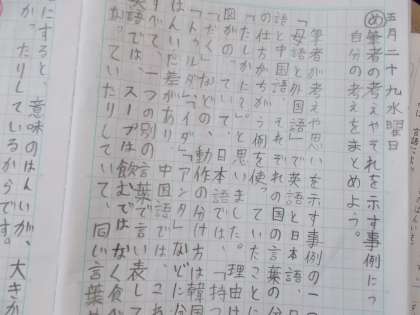 五月二十九水曜日
め筆者の考えやそれを示す事例につ
自分の考えをまとめよう。
筆者が考えや思いを示す事例の一つ
「母語と外国語」で英語と日本語、日
語と中国語、それぞれの国の言葉の分
の仕かたがちがう例を使っていたことに
図がのっていて、と思いました。理由は
日本語では、「持つ
「だく」などの、動作の分け方は韓国
「トゥルダ」「イダ」「アンタ」などに分
はんいに差があり、中国語では、これ
すべて、一つの別の言葉で言い表して
英語では、スープは飲むではなく食べ
な。ていたりしていて、同じ言葉
にすると、意味のはんいが、大きか
か。たりしているからです。